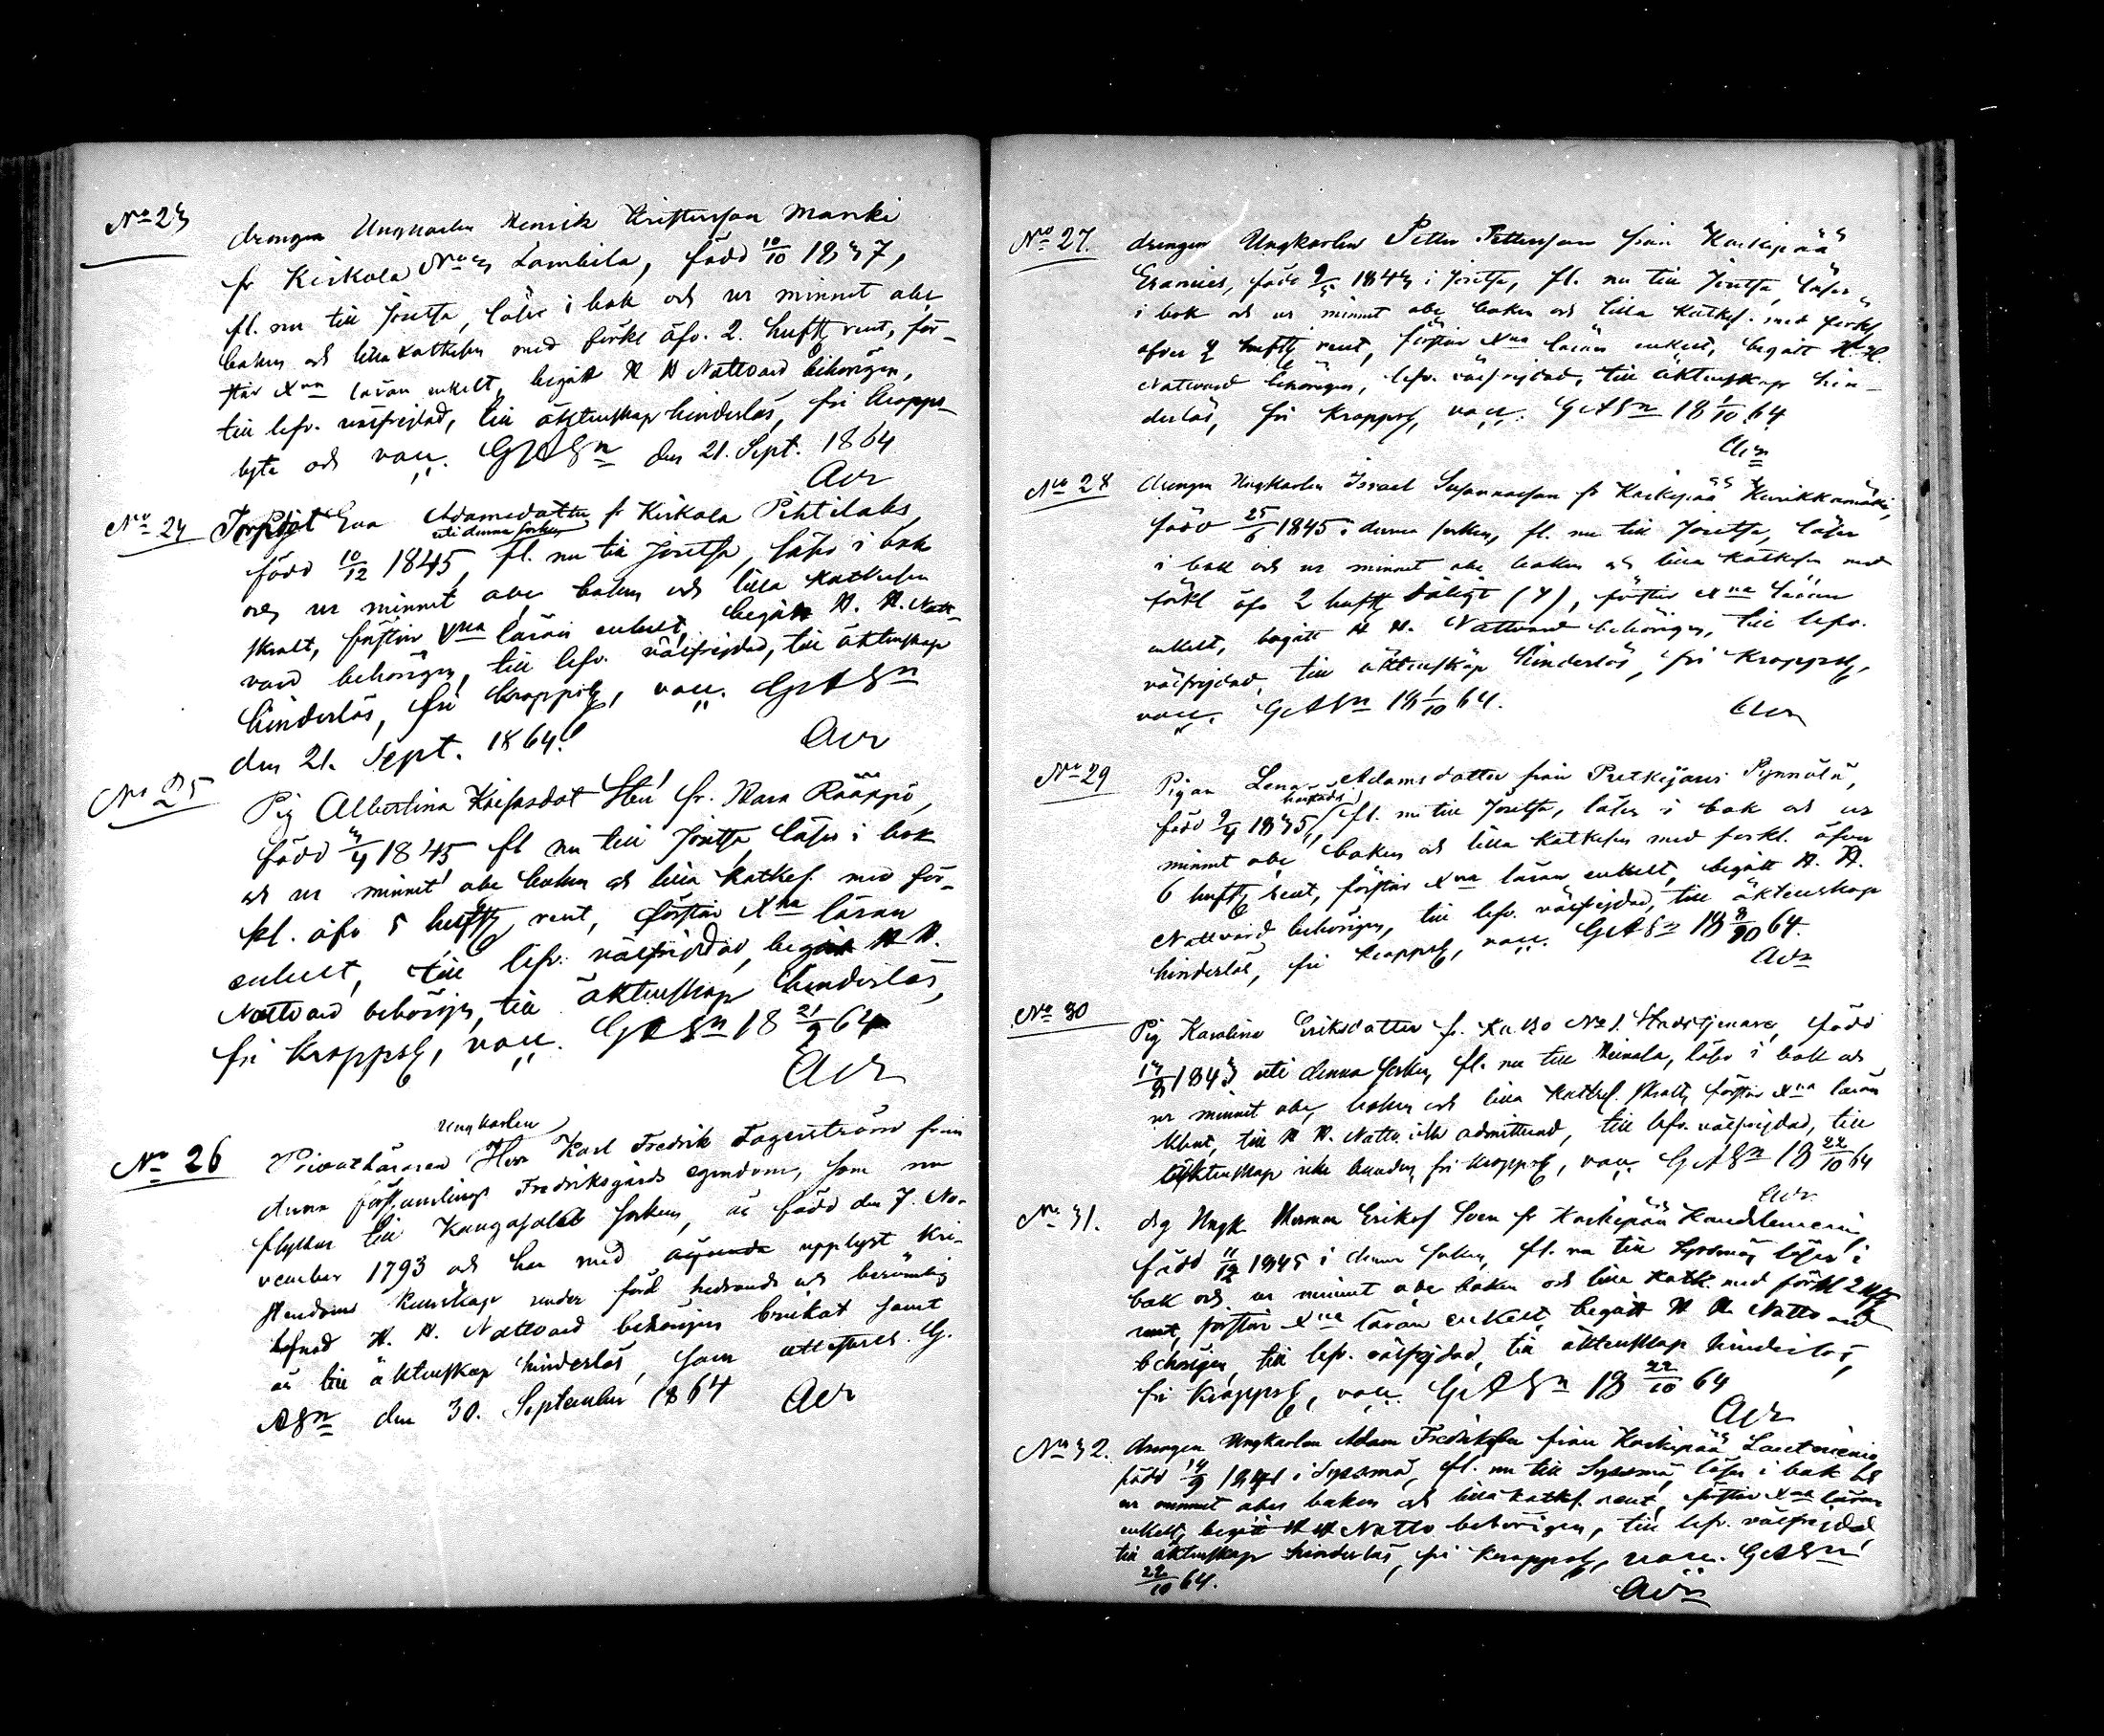 No 23
drengen Ungkarlen Henrik Kristersson Manki
fr Kirkola No 3 Lambila, född 10/10 1837,
fl. nu till Joutsa, läser i bok och ur minnet abc
boken och lilla kattkesen med förkl öfv. 2. hufst rent, för-
står Xna läran enkelt, begått H H Nattvard behörigen,
till lefv. välfrejdad, till äktenskap hinderlös, fri kropps-
lyte och vacc. GASn den 21. Sept. 1864
No 24
Eva Adamsdatter fr Kirkola Pihtilaks
uti denna socken
född 10/12 1845, fl. nu till Joutsa, läser i bok
och ur minnet abc boken och lilla kattkesen
skralt, förstår Xna läran enkelt, begått H. H. Natt-
vard behörigen, till lefv. välfrejdad, till äktenskap
hinderlös, fri kroppsl, vacc. GASn
den 21. Sept. 1864.
No 25
Pig Albertina dot fr. Rääppö,
född 3/4 1845 fl nu till Joutsa, läser i bok
och ur minnet abc boken och lilla katkes. med för-
kl. öfv 5 hufst rent, förstår Xna läran
enkelt, till lefv. välfrejdad, begått H H.
Nattvard behörigen, till äktenskap hinderlös,
fri kroppsl, vacc. GASn 18 21/9 64
No 26
ungkarlen
Privatläraren Herr Karl Fredrik Fagerström från
denna församlings Fredriksgårds egendom, som nu
flyttar till Kangasala socken, är född den 7. No-
vember 1793 och har med upplyst kri-
stendoms kunskap under förd hedrande och berömlig
lefnad H. H. Nattvard behörigen brukat samt
är till äktenskap hinderlös, som attesteras. G.
ASn den 30. September 1864
No 27.
drengen Ungkarlen Petter Pettersson från Koskipää
född 9/5 1843 i Joutsa, fl. nu till Joutsa, läser
i bok och ur minnet abc boken och lilla katkes. med förkl,
öfver hufst rent, förstår Xna läran enkelt, begått H. H.
Nattvard behörigen, lefv. välfrejdad, till äktenskap hin-
derlös, fri kroppsl, vacc. GASn 18 1/10 64
No 28
drengen Ungkarlen Israel Susannasson fr Koskipää
född 25/6 1845 i denna socken, fl. nu till Joutsa, läser
i bok och ur minnet abc boken och lilla katkesen med
förkl öfv 2 hufst dåligt (4), förstår Xna läran
enkelt, begått H H. Nattvard behörigen, till lefv.
välfrejdad, till äktenskap hinderlös, fri kroppsl,
vacc. GASn 18 1/10 64.
No 29
Pigan Lena Adamsdatter från Putkijärvi Pynnölä,
född 9/4 1835, fl. nu till Joutsa, läser i bok och ur
minnet abc boken och lilla katkesen med förkl. öfver
6 hufst rent, förstår Xna läran enkelt, begått H. H.
Nattvard behörigen, till lefv. välfrejdad, till äktenskap
hinderlös, fri kroppsl, vacc. GASn 18 64.
No 30
Pig Karolina Eriksdatter fr. No 1. född
1843 uti denna socken, fl. nu till Heinola, läser i bok och
ur minnet abc, boken och lilla kattkes. skralt, förstår Xna läran
till H H. Nattv. icke admitterad, till lefv. välfrejdad, till
äktenskap icke bunden, fri kroppsl, vacc. GASn 18 22/10 64
No 31.
drg Ungk Herman Eriks Sven fr Koskipää
född 11/12 1845 i denna socken, fl. nu till Sysmä, läser i
bok och ur minnet abc boken och lilla katk. med förkl 2 hfst
rent, förstår Xna läran enkelt, begått H H Nattvard
behörigen, till lefv. välfrejdad, till äktenskap hinderlös,
fri kroppsl, vacc. GASn 18 22/10 64
No 32.
drengen Ungkarlen Adam från Koskipää
född 14/9 1841 i Sysmä, fl. nu till Sysmä, läser i bok och
ur minnet abc boken och lilla katks. rent, förstår Xna läran
enkelt, begått H H Nattv behörigen, till lefv. välfrejdad
till äktenskap hinderlös, fri kroppsl, vacc. GASn
22/10 64.